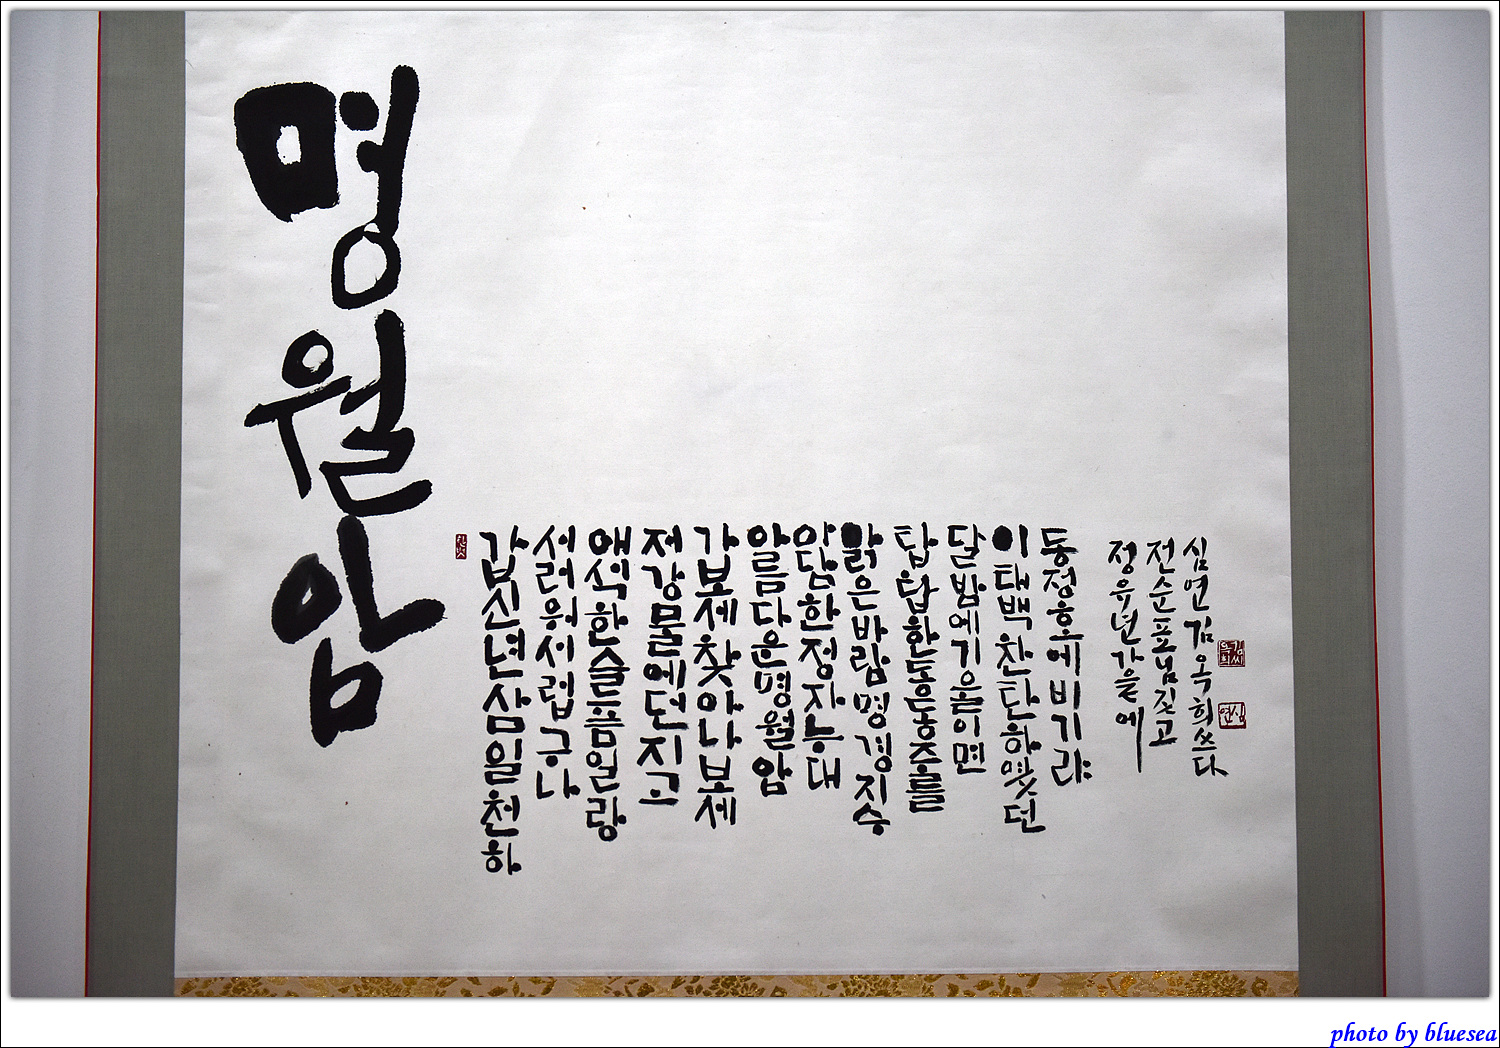 명월암
갑신년삼일천하
서러워서럽구나
애석한슬픔일랑
저강물에던지고
가보세찾아나보세
아름다운명월암
아담한정자능대
맑은바람명경지승
탑탑한동동주를
달밤에기울이면
이태백찬탄하였던
동정호에비기랴
정유년가을에
전순표님짓고
심연김옥희쓰다
photo by bluesea